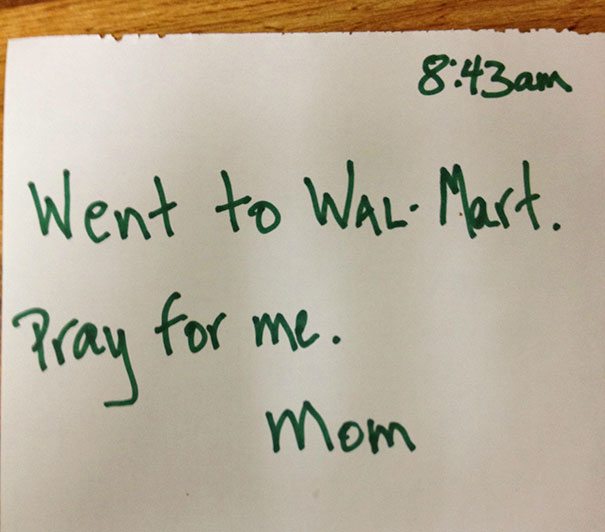 8:43am
Went to WAL-Mart.
Pray for me.
Mom